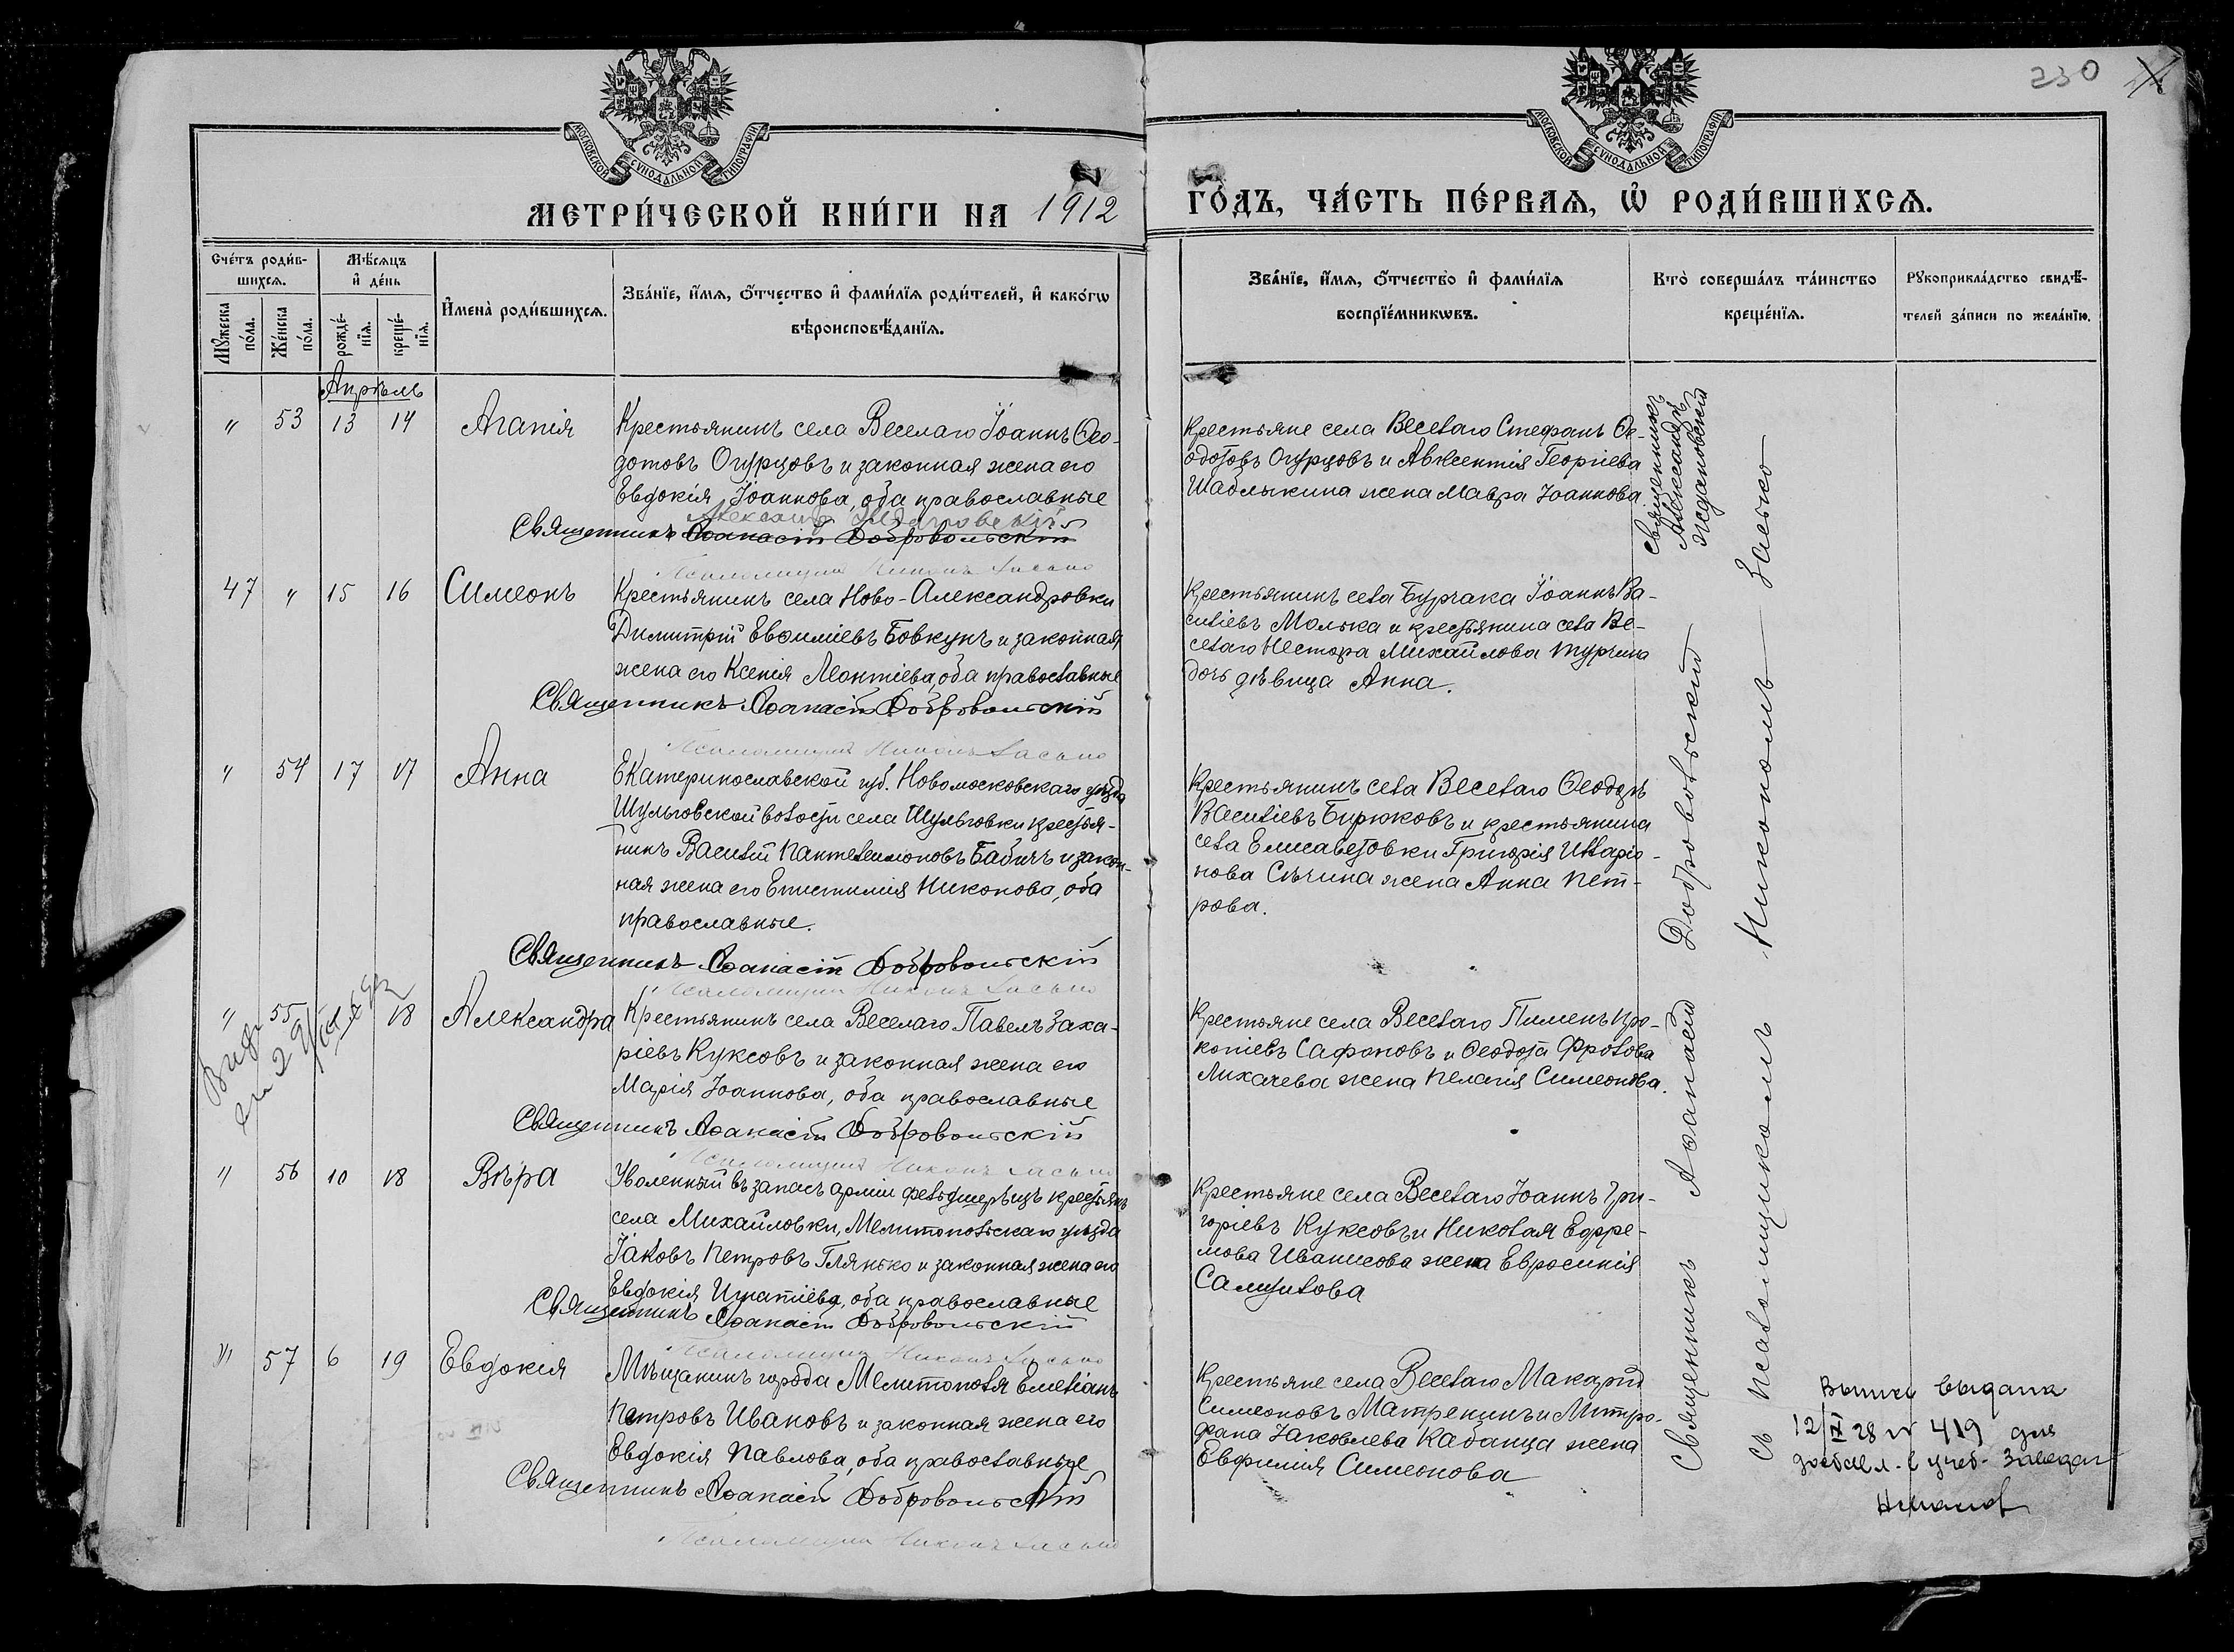 230
МОСКОВСКОЙ СѴНОДАЛЬНОЙ ТИПОГРАФІИ
МОСКОВСКОЙ СѴНОДАЛЬНОЙ ТИПОГРАФІИ
МЕТРИ́ЧЕСКОЙ КНИ́ГИ НА 1912
ГО́ДЪ, ЧА́СТЬ ПЕ́РВАЯ, Ѿ РОДИ́ВШИХСЯ.
Сче́тъ роди́в-
шихся.
Мꙋжеска по́ла.
Же́нска по́ла.
Мѣ́сяцъ и҆ де́нь
рожде́-
нїя.
креще́-
нїя.
И҆мена̀ роди́вшихся.
Зва́нїе, и҆́мя, о҆́тчество и҆ фами́лїя роди́телей, и҆ како́гѡ
вѣроисповѣ́данїя.
Зва́нїе, и҆́мя, о҆́тчество и҆ фами́лїя
воспрїе́мникѡвъ.
Кто̀ соверша́лъ та́инство
креще́нїя.
Рꙋкоприкла́дство свидѣ́-
телей за́писи по жела́нїю.
Апрѣль
" 53 13 14 Агапія
Крестьянинъ села Веселаго Іоаннъ Ѳео-
дотовъ Огурцовъ и законная жена его
Евдокія Іоаннова, оба православные
Александръ Ждановскій
Священникъ Аѳанасій Добровольскій
Псаломщикъ Никонъ Засько
Крестьяне села Веселаго Стефанъ Ѳе-
одотовъ Огурцовъ и Авксентія Георгіева
Шаблыкина жена Мавра Іоаннова
Священникъ
Александръ
Ждановскій
47 " 15 16 Симеонъ
Крестьянинъ села Ново-Александровки
Димитрій Евѳиміевъ Бовкунъ и законная
жена его Ксенія Леонтіева, оба православные
Священникъ Аѳанасій Добровольскій
Псаломщикъ Никонъ Засько
Крестьянинъ села Бурчака Іоаннъ Ва-
силіевъ Молька и крестьянина села Ве-
селаго Нестора Михайлова Турчина
дочь дѣвица Анна.
" 54 17 17 Анна
Екатеринославской губ. Новомосковскаго уѣзда
Шульговской волости села Шульговки крестья-
нинъ Василій Пантелеимоновъ Бабичъ и закон-
ная жена его Епистимія Никонова, оба
православные.
Священникъ Аѳанасій Добровольскій
Псаломщикъ Никонъ Засько
Крестьянинъ села Веселаго Ѳеодоръ
Василіевъ Бирюковъ и крестьянина
села Елисаветовки Григорія Иларіо-
нова Сѣчина жена Анна Пет-
рова.
" 55 18 Александра
Крестьянинъ села Веселаго Павелъ Заха-
ріевъ Куксовъ и законная жена его
Марія Іоаннова, оба православные
Священникъ Аѳанасій Добровольскій
Псаломщикъ Никонъ Засько
Крестьяне села Веселаго Пименъ Про-
копіевъ Сафоновъ и Ѳеодота Фролова
Лихачева жена Пелагія Симеонова.
" 56 10 18 Вѣра
Уволенный въ запасъ арміи фельдшеръ изъ крестьянъ
села Михайловки, Мелитопольскаго уѣзда
Іаковъ Петровъ Глянько и законная жена его
Евдокія Игнатіева, оба православные
Священникъ Аѳанасій Добровольскій
Псаломщикъ Никонъ Засько
Крестьяне села Веселаго Іоаннъ Гри-
горіевъ Куксовъ и Николая Ефре-
мова Иванисова жена Евросинія
Самуилова
" 57 6 19 Евдокія
Мѣщанинъ города Мелитополя Емеліанъ
Петровъ Ивановъ и законная жена его
Евдокія Павлова, оба православные
Священникъ Аѳанасій Добровольскій
Псаломщикъ Никонъ Засько
Крестьяне села Веселаго Макарій
Симеоновъ Матренинъ и Митро-
фана Іаковлева Кабанца жена
Евфимія Симеонова
Священникъ Аѳанасій Добровольскій
съ Псаломщикомъ Никономъ Засько
выдана
12/IX 28 № 419 для